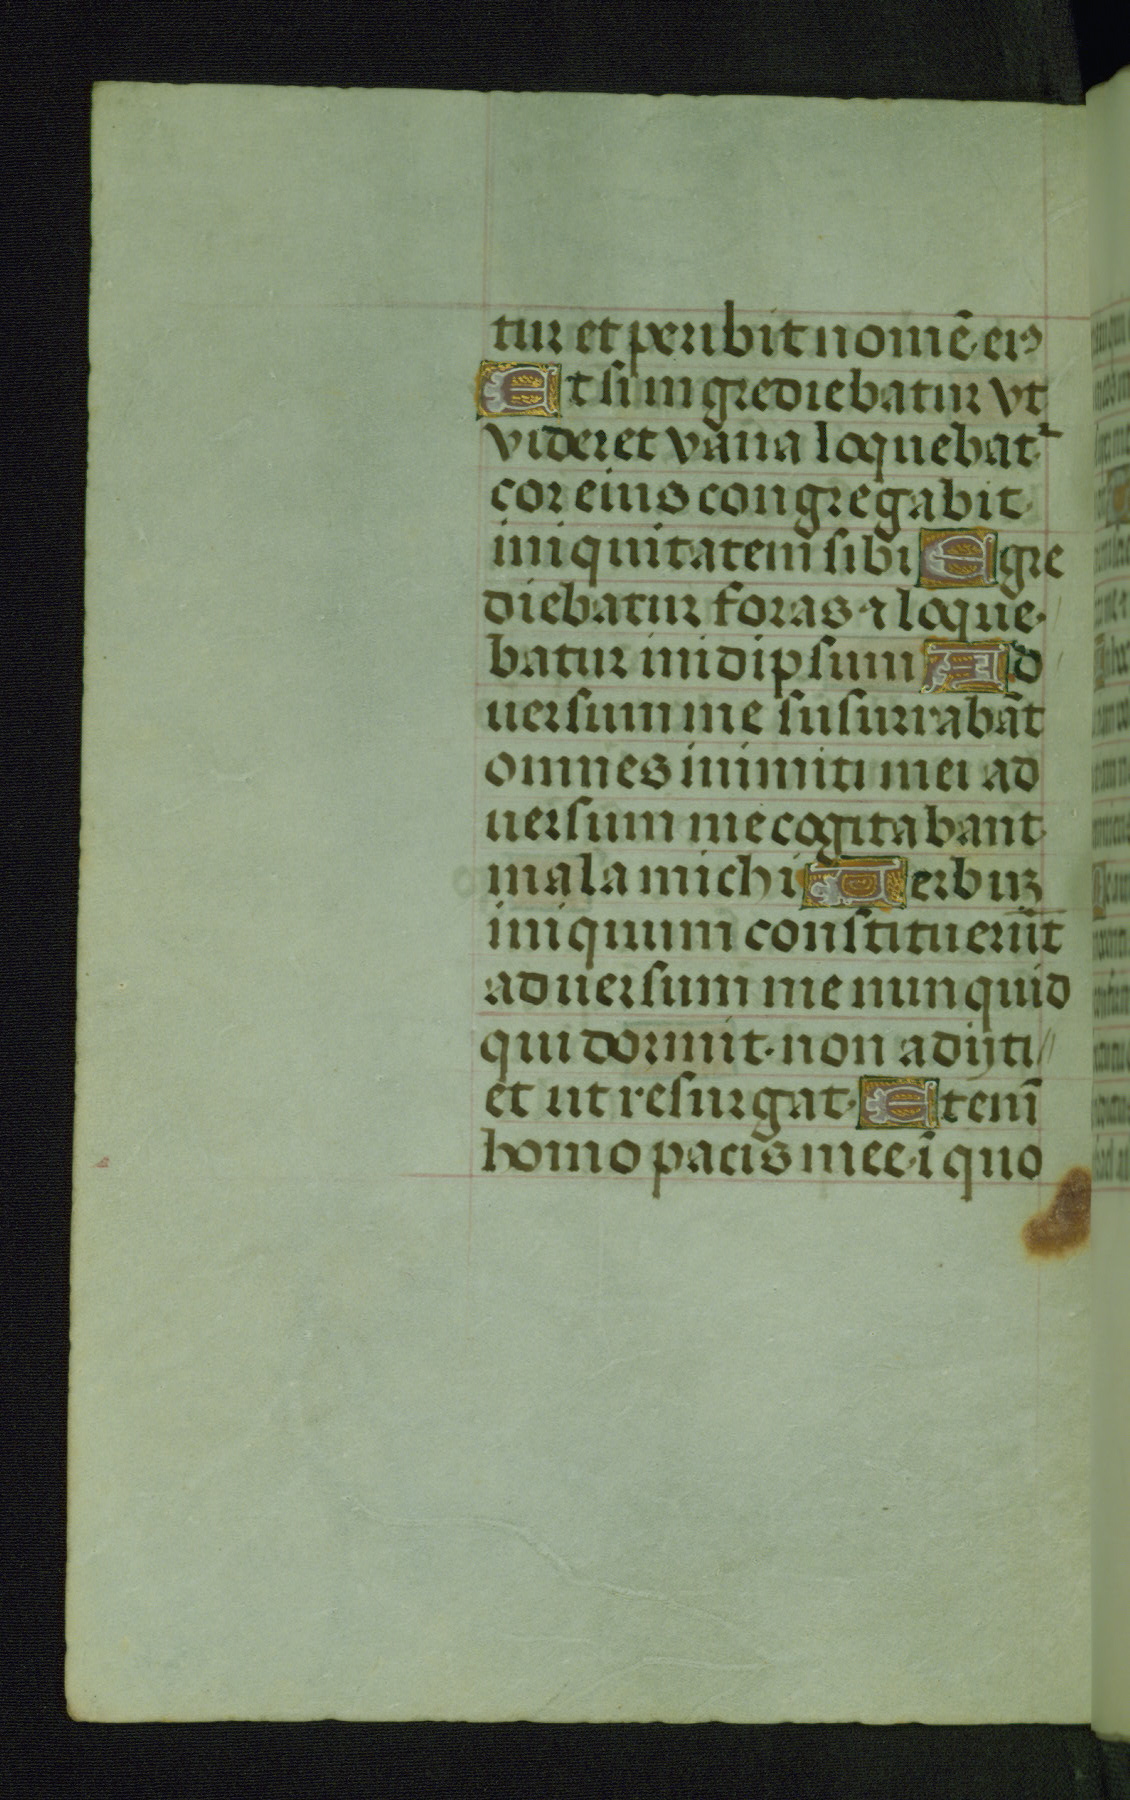 tur et peribit nomē eiꝰ
Et si ingrediebatur vt
videret vana loquebat᷑
cor eius congregabit
iniquitatem sibi Egre
diebatur foras ⁊ loque
batur in id ipsum Ad
uersum me susurrabāt
omnes inimiti mei ad
uersum me cogitabant
mala michi Verbuꝫ
iniquum constituerūt
aduersum me nunquid
qui dormit. non adijti
et ut resurgat. Etenī
homo pacis mee. ī quo